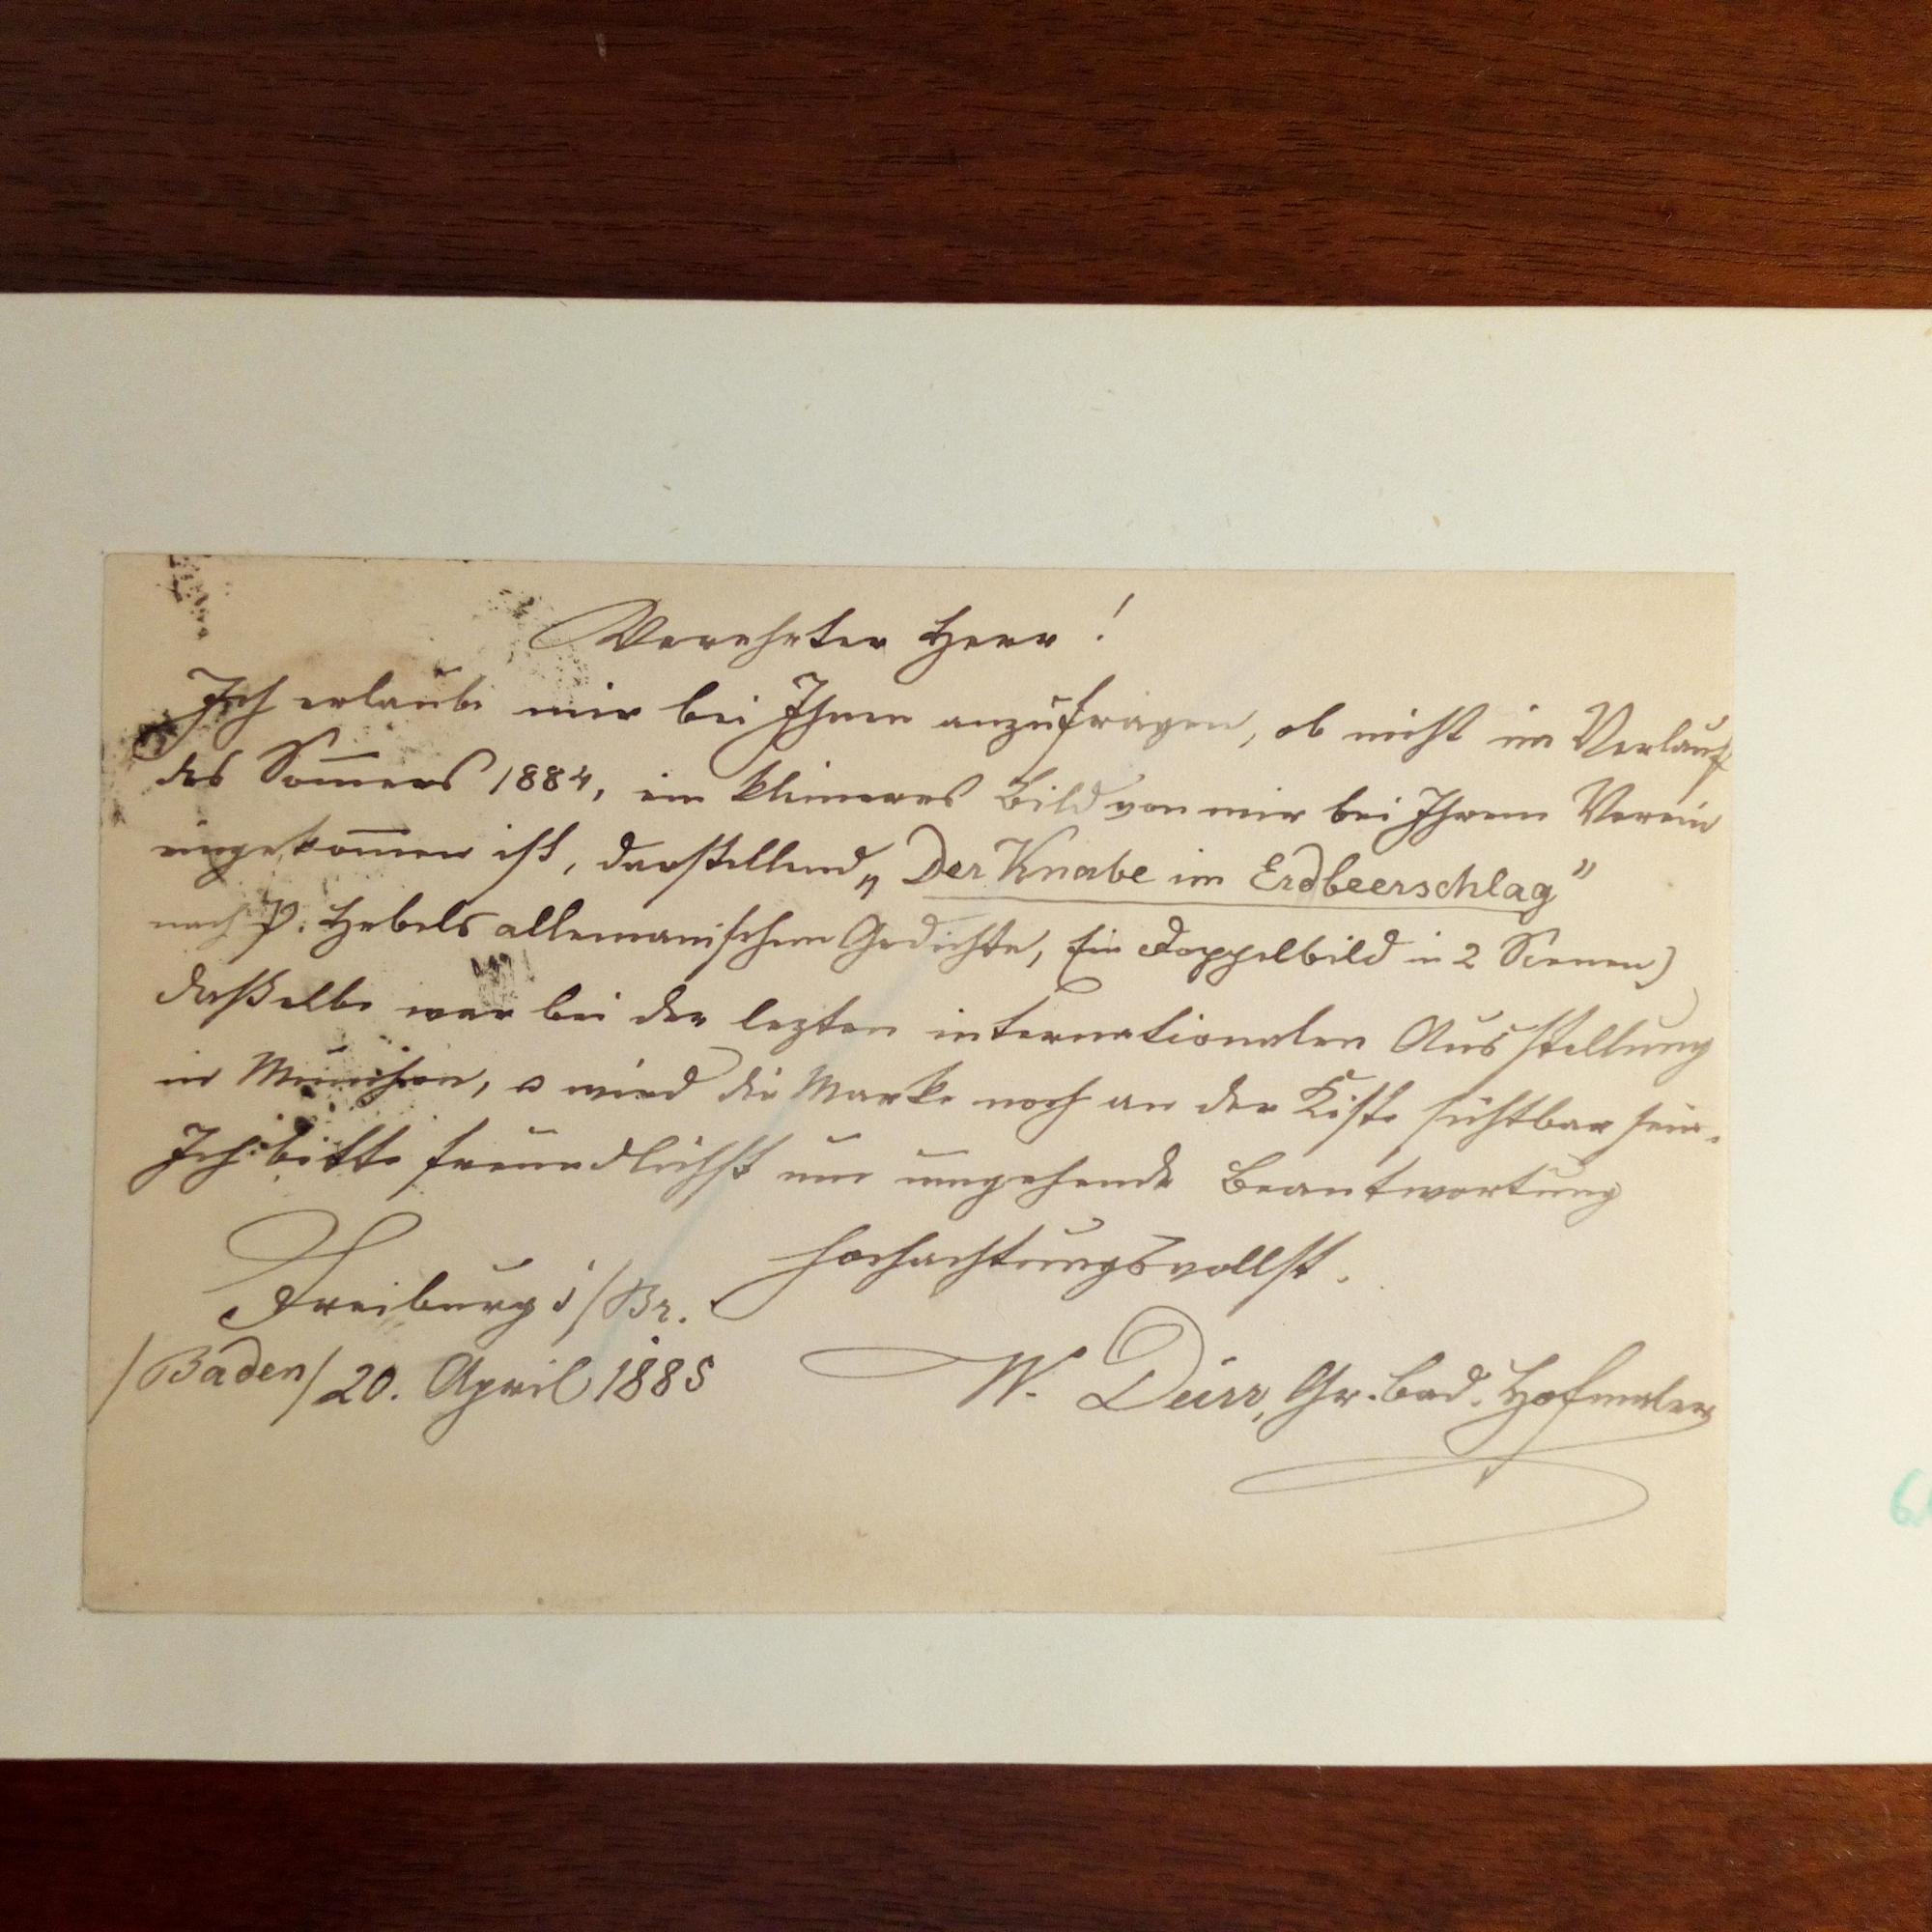 Verehrter Herr!
Ich erlaube mir bei Ihnen anzufragen, ob nicht im Verlauf
des Som̅ers 1884, ein kleineres Bild von mir bei Ihrem Verein
eingekom̅en ist, darstellend „Der Knabe im Erdbeerschlag"
nach P. Hebels allemanischem Gedichte, (ein Doppelbild in 2 Scenen)
daßelbe war bei der lezten internationalen Ausstellung
in München, u wird die Marke noch an der Kiste sichtbar sein.
Ich bitte freundlichst um umgehende Beantwortung
hochachtungsvollst.
Freiburg i/Br.
/Baden/ 20. April 1885
W. Dürr, Gr. bad. Hofmaler